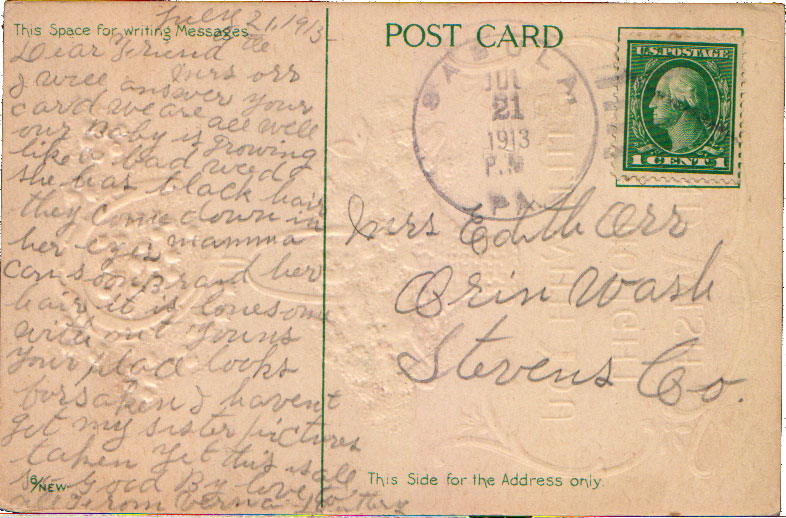 July 21, 1913
This Space for writing Messages.
Dear Friend
Mrs Orr
I will answer your
card we are all well
our Baby is growing
like a bad weed
she has black hair
they come down in
her eyes mamma
can soon Braid her
hair it is lonesome
with out youns
your place looks
forsaken I havent
got my sister pictures
taken yet this is all
so good By love to
all From Verna
6/NEW
POST CARD
SABULA
JUL
21
1913
P.M
PA.
U.S. POSTAGE
1 CENT 1
Mrs Edith Orr
Orin Wash
Stevens Co.
This Side for the Address only.